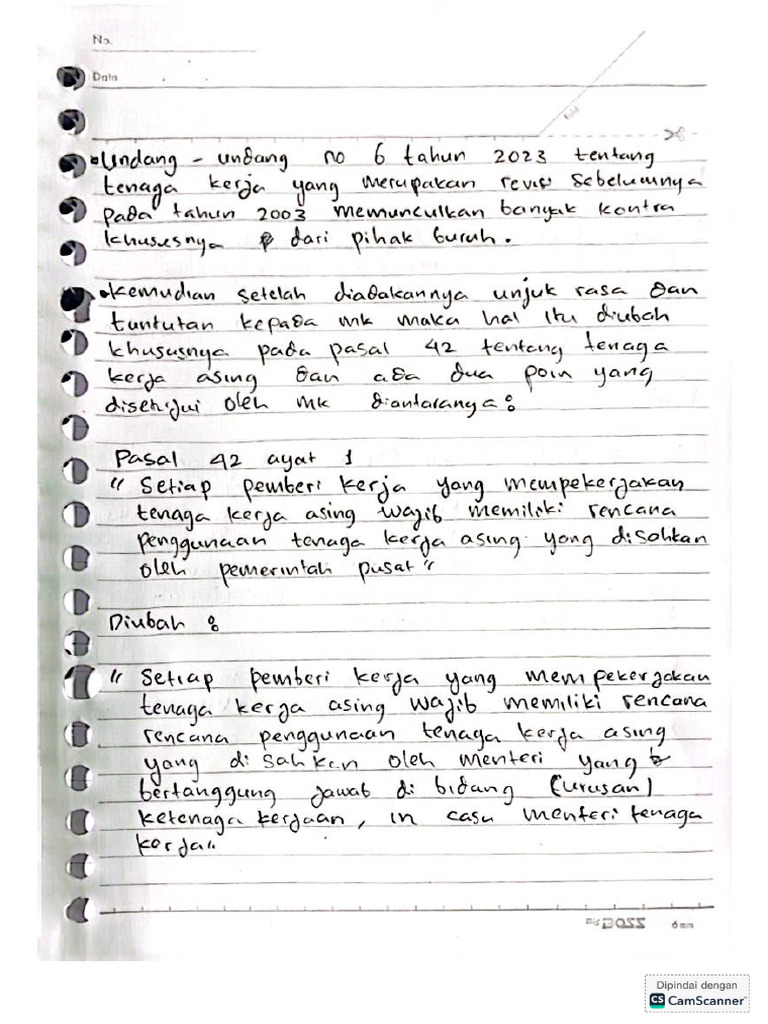 No.
Date
• Undang - undang no 6 tahun 2023 tentang
tenaga kerja yang merupakan revisi sebelumnya
pada tahun 2003 memunculkan banyak kontra
khususnya dari pihak buruh.
• Kemudian setelah diadakannya unjuk rasa dan
tuntutan kepada mk maka hal itu diubah
khususnya pada pasal 42 tentang tenaga
kerja asing dan ada dua poin yang
disetujui oleh mk diantaranya :
Pasal 42 ayat 1
" Setiap pemberi kerja yang mempekerjakan
tenaga kerja asing wajib memiliki rencana
penggunaan tenaga kerja asing yang disahkan
oleh pemerintah pusat "
Diubah :
" Setiap pemberi kerja yang mempekerjakan
tenaga kerja asing wajib memiliki rencana
rencana penggunaan tenaga kerja asing
yang di sahkan oleh menteri yang
bertanggung jawab di bidang (urusan)
ketenaga kerjaan, in casu menteri tenaga
kerja"
BOSS 6mm
Dipindai dengan
CS CamScanner